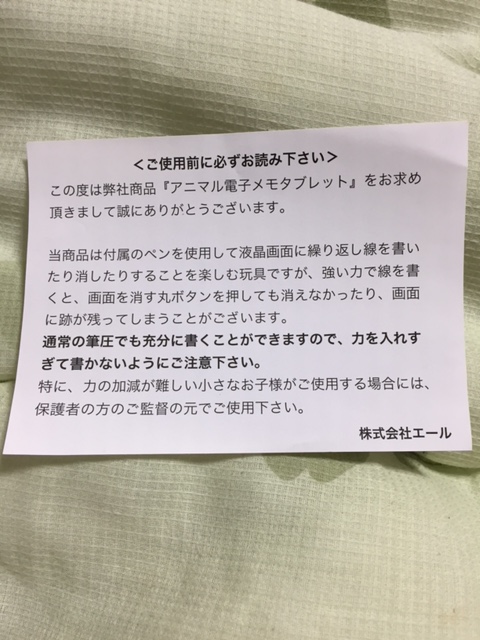 ＜ご使用前に必ずお読み下さい＞
この度は弊社商品『アニマル電子メモタブレット』をお求め
頂きまして誠にありがとうございます。
当商品は付属のペンを使用して液晶画面に繰り返し線を書い
たり消したりすることを楽しむ玩具ですが、強い力で線を書
くと、画面を消す丸ボタンを押しても消えなかったり、画面
に跡が残ってしまうことがございます。
通常の筆圧でも充分に書くことができますので、力を入れす
ぎて書かないようにご注意下さい。
特に、力の加減が難しい小さなお子様がご使用する場合には、
保護者の方のご監督の元でご使用下さい。
株式会社エール